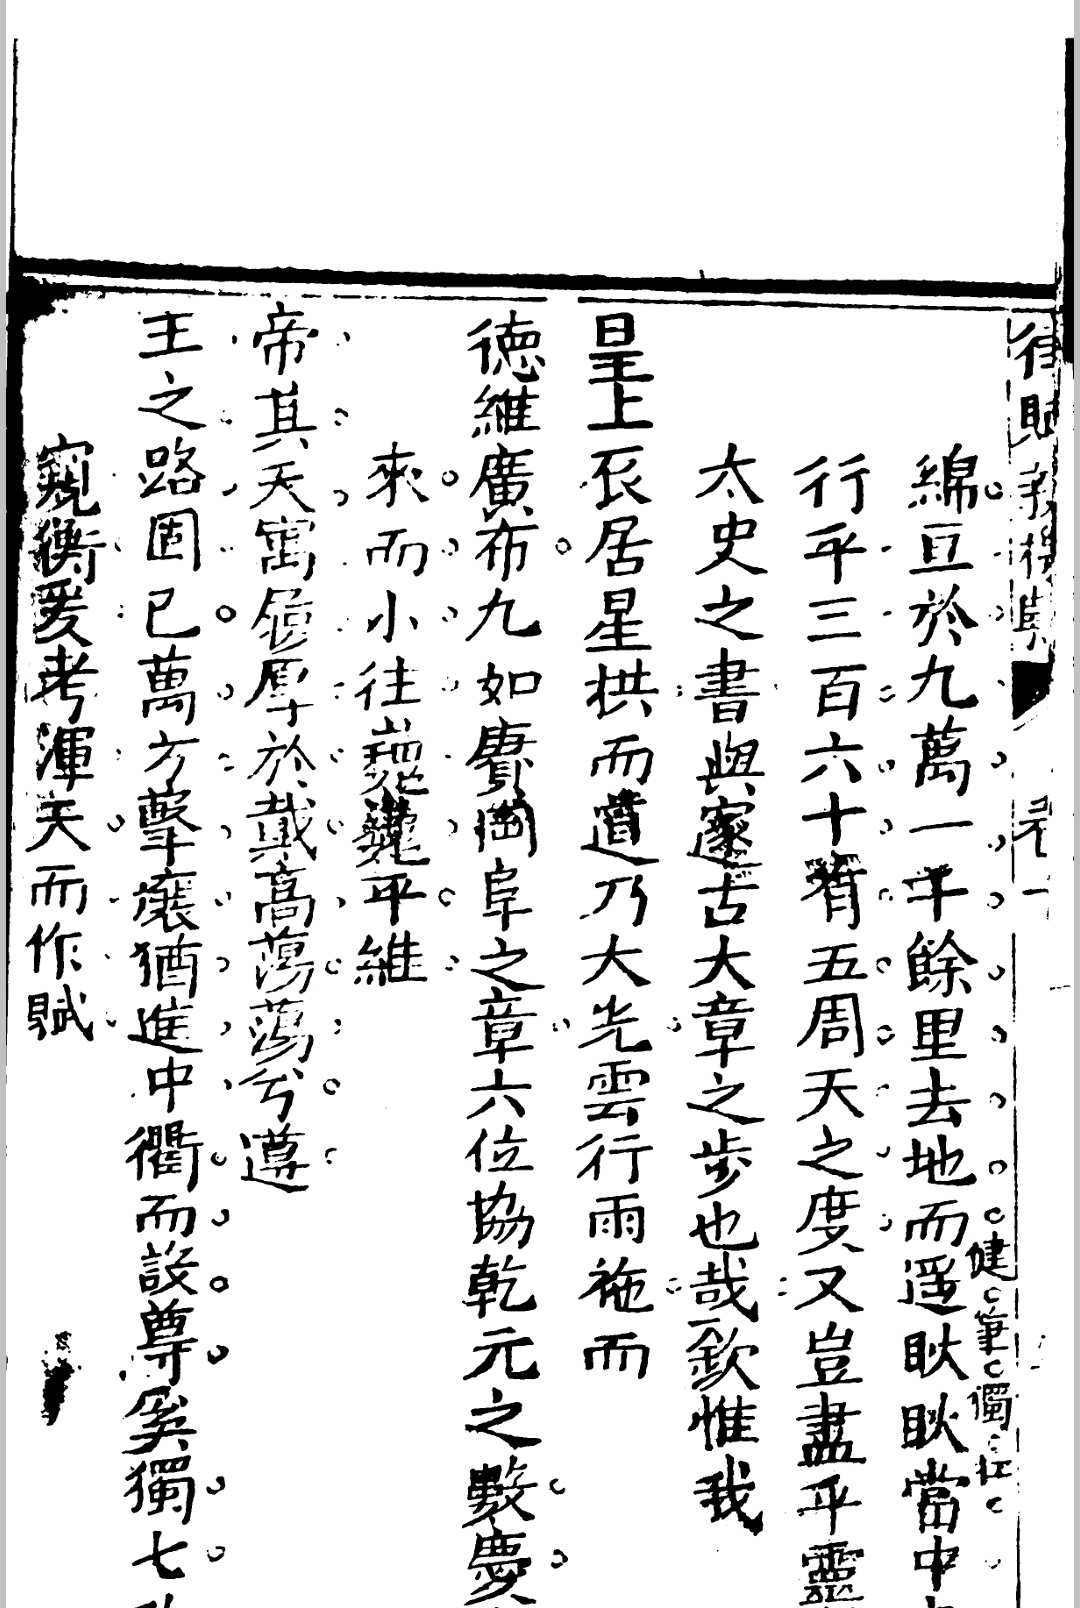 綿亘於九萬一千餘里去地而遥眇眇當中
健筆獨
行乎三百六十有五周天之度又豈盡乎靈
太史之書與邃古大章之步也哉欽惟我
皇上辰居星拱而道乃大光雲行雨施而
德維廣布九如賡岡阜之章六位協乾元之數慶
來而小往巍巍乎維
帝其天寓 厚於戴高蕩蕩兮遵
王之路固已萬方擊壤猶進中衢而設尊奚獨七
窺衡爰考渾天而作賦
律賦
卷一